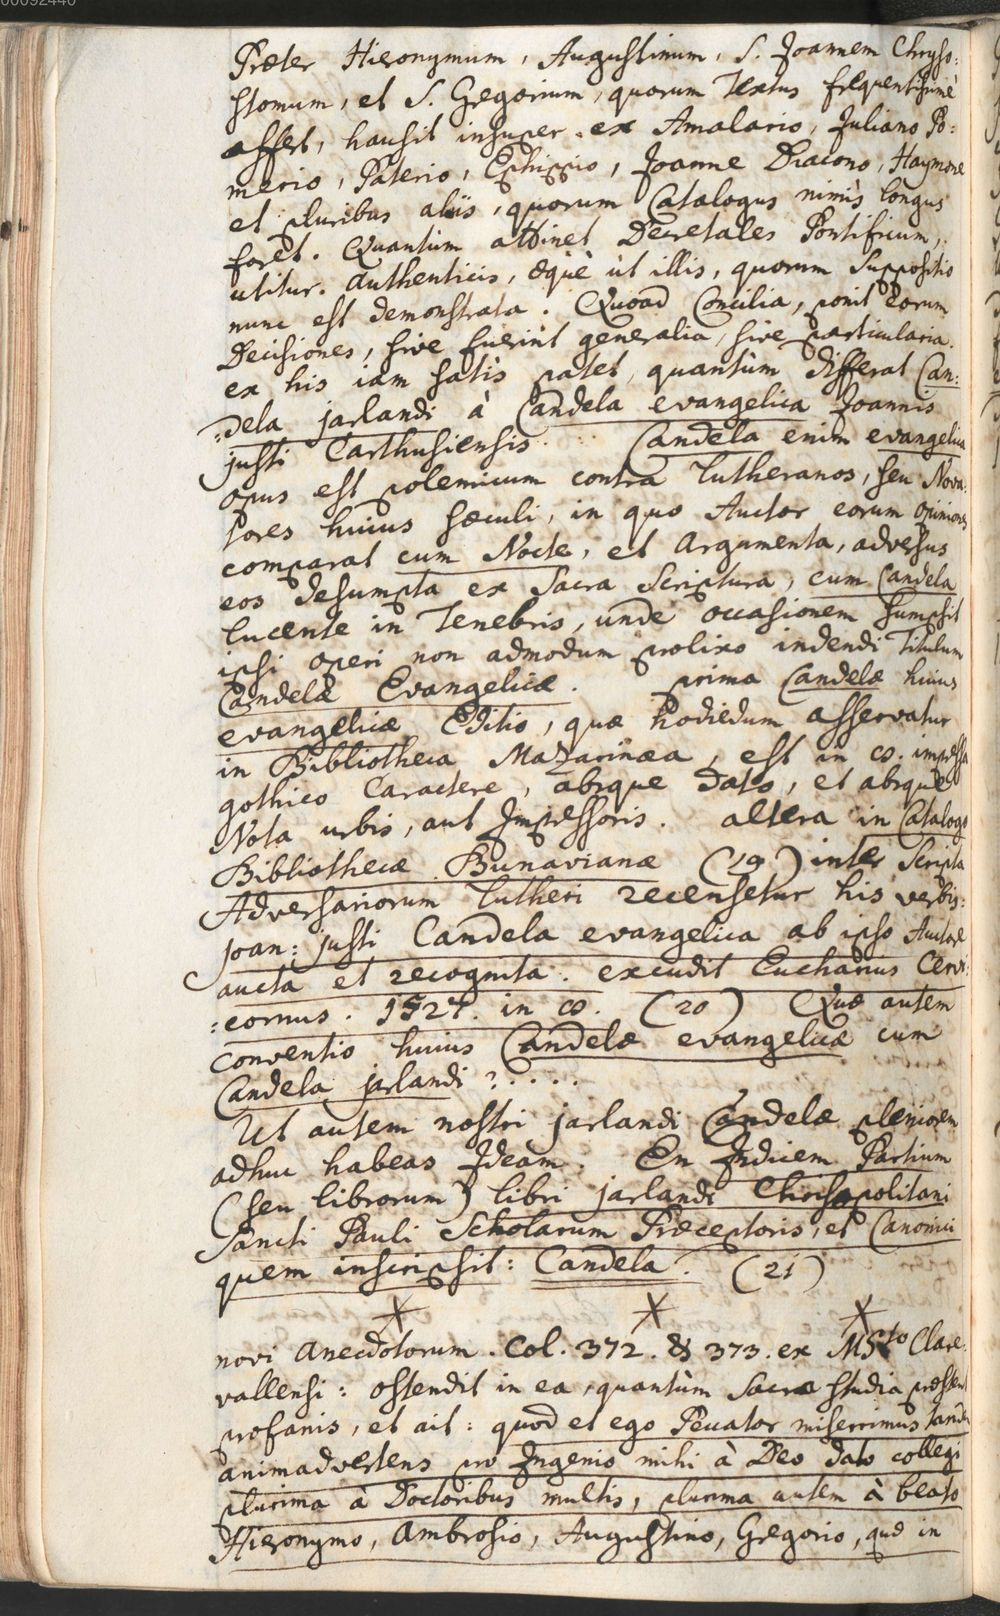 00092440
Præter Hieronymum, Augustinum, S. Joannem Chryso:
stomum, et S. Gregorium, quorum Textus frequentissimè
affert, hausit insuper ex Amalario, Juliano Po:
merio, Paterio, Ephippio, Joanne Diacono, Haymone
et pluribus aliis, quorum Catalogus nimis longus
foret. Quantùm attinet Decretales Pontificum,
utitur. authenticis, æquè ùt illis, quorum Suppositio
nunc est demonstrata. Quoad Concilia, ponit eorum
Decisiones, sive fuerint generalia, sive particularia.
ex his iam satis patet, quantùm differat Can:
:dela jarlandi à Candela evangelica Joannis
justi Carthusiensis. Candela enim evangelica
opus est polemicum contra Lutheranos, seu Nova:
tores huius sæculi, in quo Auctor eorum opiniones
comparat cum Nocte, et Argumenta, adversus
eos desumpta ex Sacra Scriptura, cum Candela
lucente in Tenebris, unde occasionem sumpsit
ipsi operi non admodum prolixo indendi Titulum
Candelæ Evangelicæ. prima Candelæ huius
evangelicæ Editio, quæ hodiedum asservatur
in Bibliotheca Mazarinæa, est in 8. impressa
gothico Caractere, absque dato, et absque
Nota urbis, aut Impressoris. altera in Catalogo
Bibliothecæ Bunavianæ (19) inter Scripta
Adversariorum Lutheri recensetur his verbis:
Joan: justi Candela evangelica ab ipso Auctore
aucta et recognita. excudit Eucharius Cervi:
:cornus. 1527. in 8. (20) Quæ autem
conventio huius Candelæ evangelicæ cum
Candela jarlandi ?....
Ut autem nostri jarlandi Candelæ pleniorem
adhuc habeas Ideam. En Indicem Partium
(seu librorum) libri jarlandi Chrisopolitani
Sancti Pauli Scholarum Præceptoris, et Canonici
quem inscripsit: Candela. (21)
novi anecdotorum. Col. 372. & 373. ex MSto Clare:
vallensi: ostendit in ea, quantùm Sacra studia præstent
profanis, et ait: quod et ego Peccator miserrimus tandem
animadvertens pro Ingenio mihi à Deo dato collegi
plurima à Doctoribus multis, plurima autem à beato
Hieronymo, Ambrosio, Augustino, Gregorio, quæ in